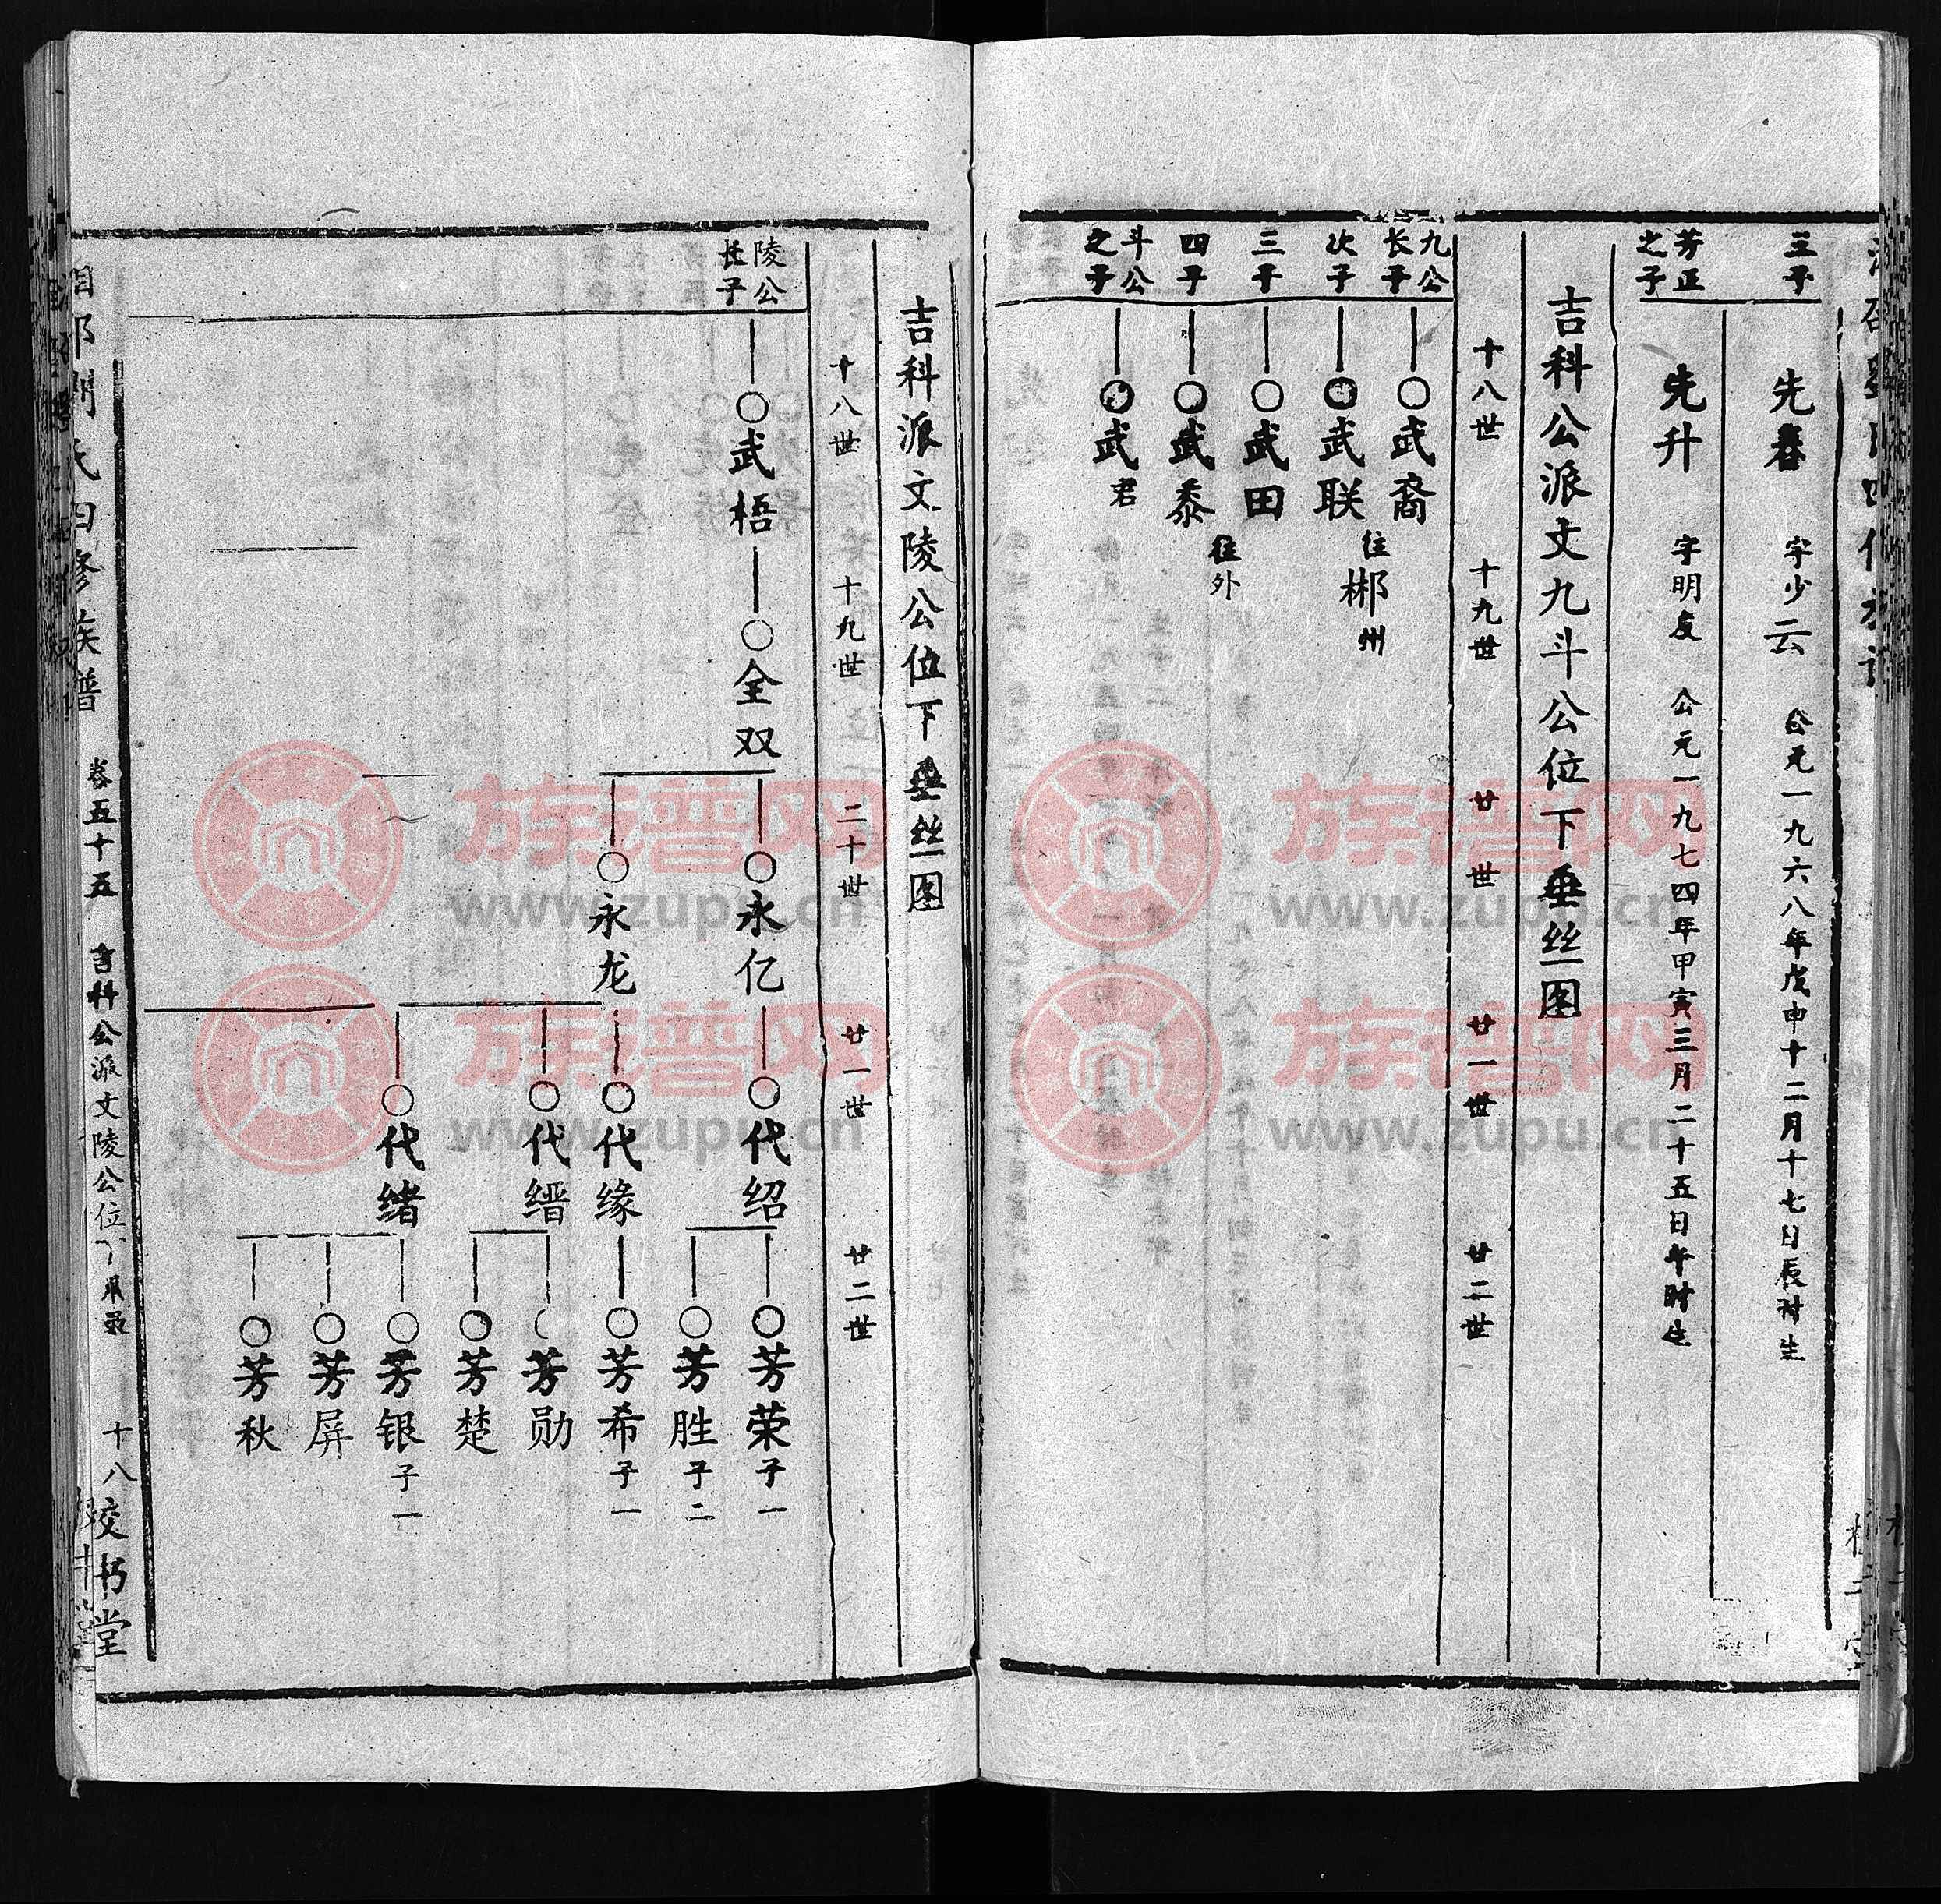 三子
先春 字少云 公元一九六八年戊申十二月十七日辰时生
芳正之子
先升 字明友 公元一九七四年甲寅三月二十五日午时生
吉科公派文九斗公位下垂丝图
十八世 十九世 廿世 廿一世 廿二世
九公长子
武裔
次子
武联 往郴州
三子
武田
四子
武泰 往外
斗公之子
武君
吉科派文陵公位下垂丝图
十八世 十九世 二十世 廿一世 廿二世
陵公长子
武梧 全双
永亿 代绍 芳荣 子一
芳胜 子二
永龙 代缘 芳希 子一
代缙 芳勋
芳楚
代绪 芳银 子一
芳屏
芳秋
氏四修族谱 卷五十五 吉科公派文陵公位下 十八 校书堂
族谱网
www.zupu.cn
族谱网
www.zupu.cn
族谱网
www.zupu.cn
族谱网
www.zupu.cn